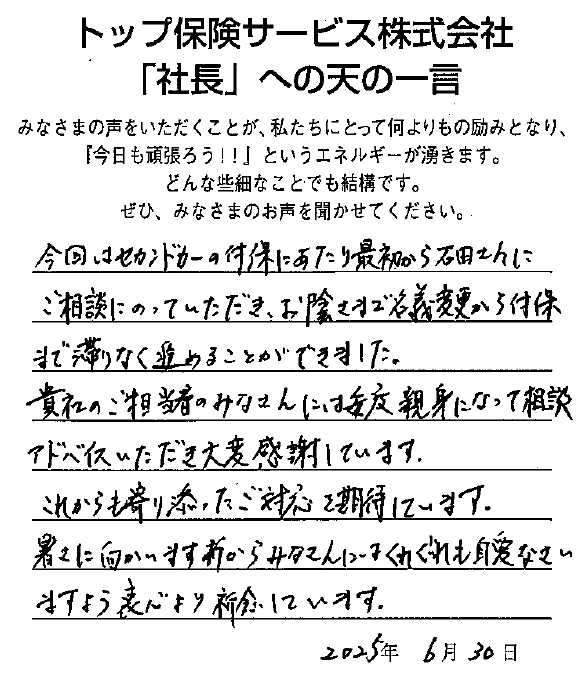 トップ保険サービス株式会社
「社長」への天の一言
みなさまの声をいただくことが、私たちにとって何よりもの励みとなり、
『今日も頑張ろう!!』というエネルギーが湧きます。
どんな些細なことでも結構です。
ぜひ、みなさまのお声を聞かせてください。
今回はセカンドカーの付保にあたり最初から石田さんに
ご相談にのっていただき、お陰さまで名義変更から付保
まで滞りなく進めることができました。
貴社のご担当者のみなさんには毎度親身になって相談
アドバイスいただき大変感謝しています。
これからも寄り添ったご対応を期待しています。
暑さに向かいます折からみなさんにはくれぐれも自愛なさい
ますよう衷心より祈念しています。
2025年 6月 30日